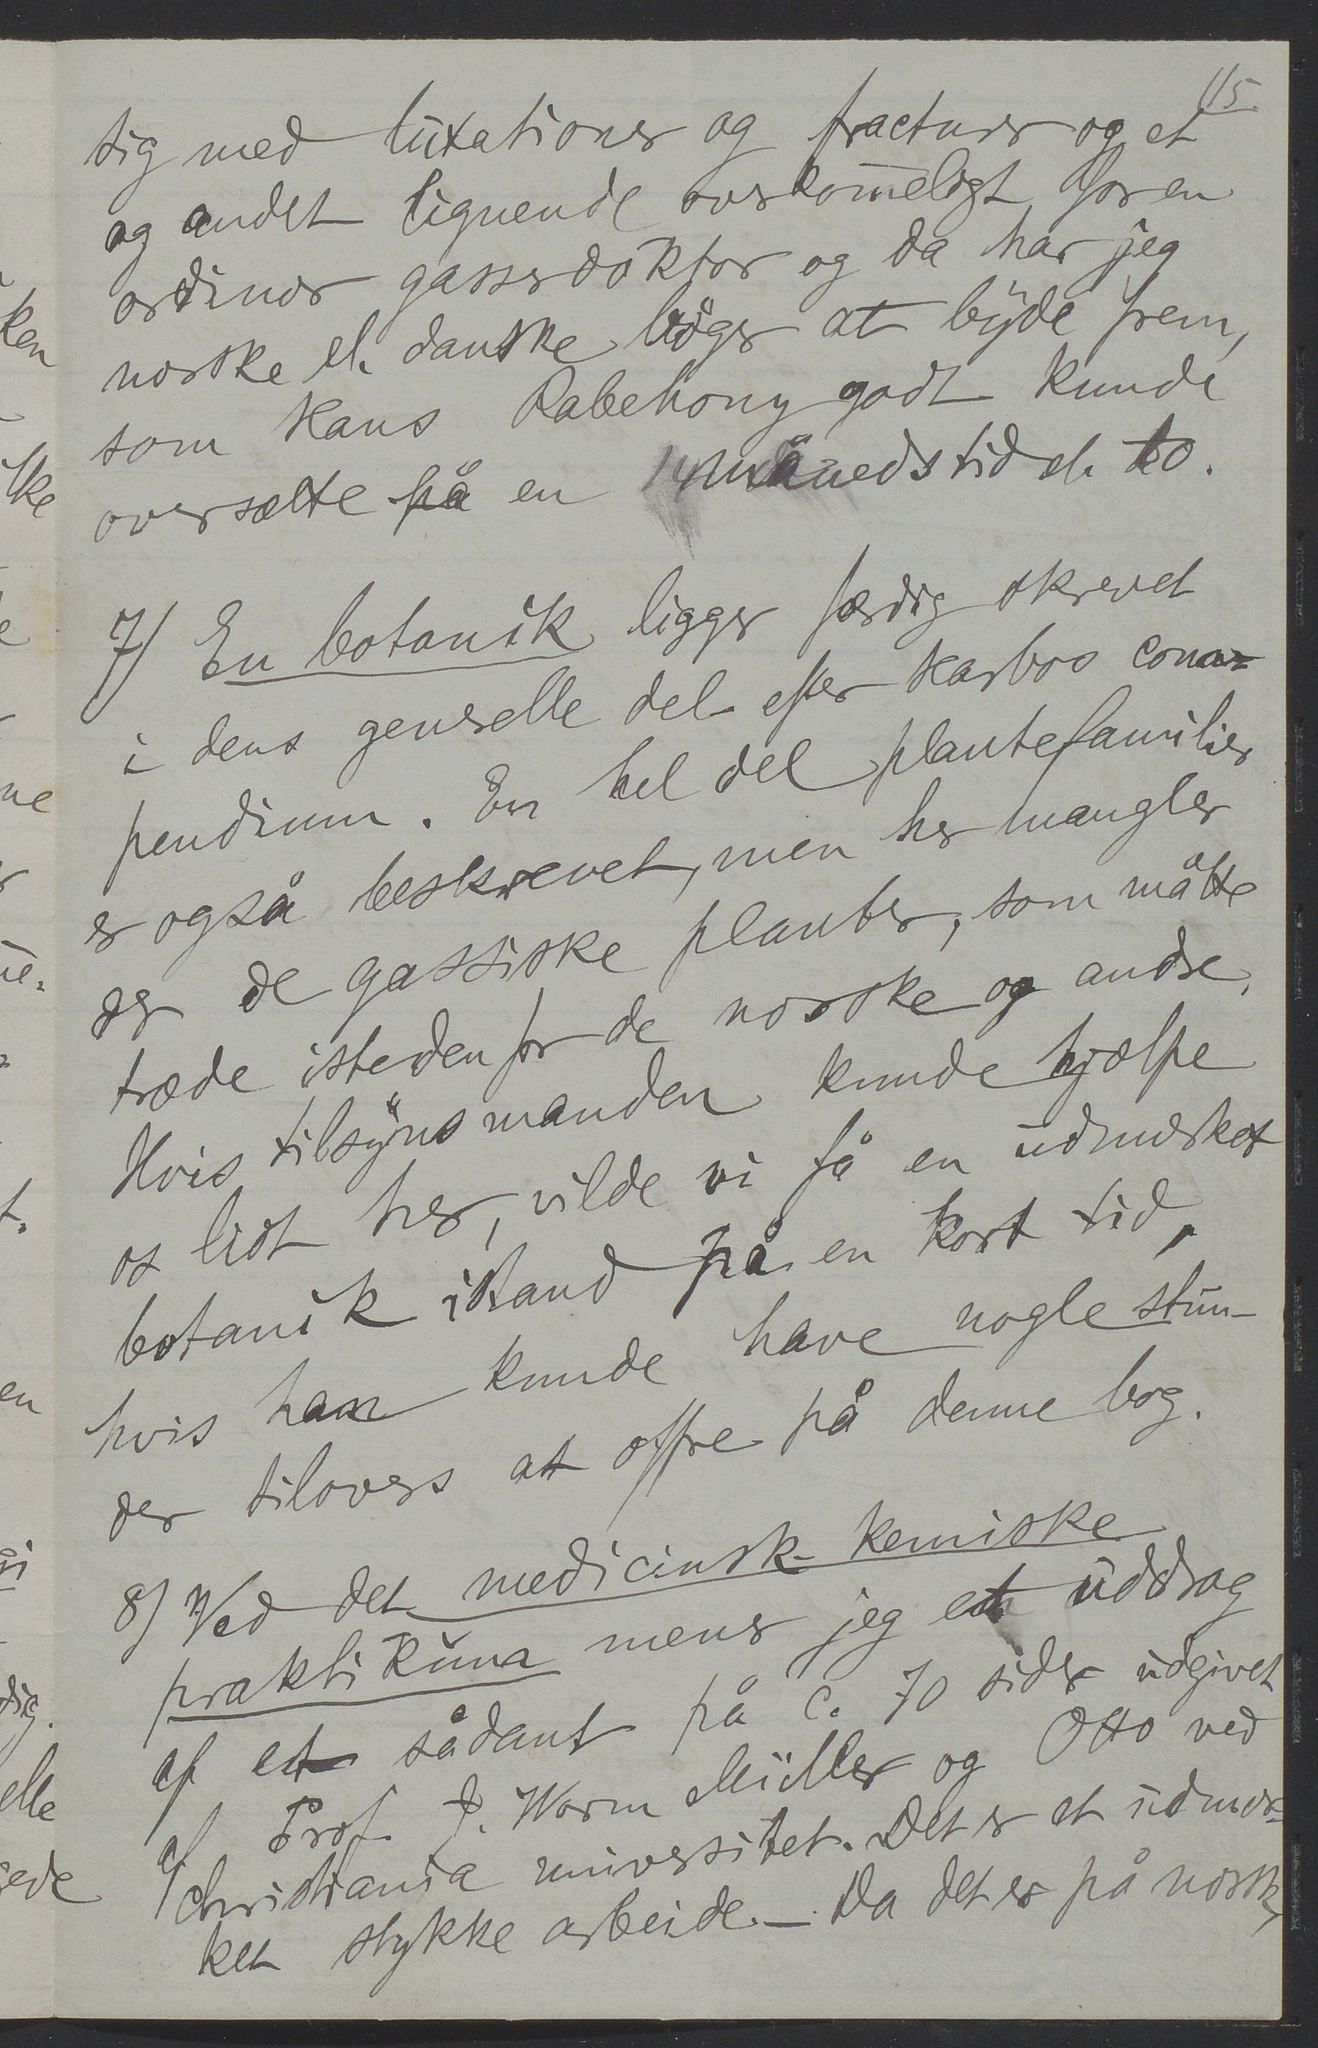 115.
sig med luxationer og fracturer og et
og andet lignende overkom̄eligt for en
ordinær gasserdoktor og da har jeg
norske el. danske bøger at byde frem,
som Hans Rabehony godt kunde
oversætte på en måneds tid el. to.
7) En botanik ligger færdig skrevet
i dens generelle del efter Harbos com-
pendium. En hel del plantefamilier
er også beskrevet, men her mangler
de gassiske planter, som måtte
træde isteden for de norske og andre.
Hvis tilsynsmanden kunde hjælpe
os lidt her, vilde vi få en udmerket
botanik istand på en kort tid,
hvis han kunde have nogle stun-
der tilovers at offre på denne bog.
8) Ved det medicinsk-kemiske
praktikum mener jeg et uddrag
af et sådant på c. 70 sider udgivet
af Prof. J. Worm Müller og Otto ved
Christiania universitet. Det er et udmær-
ket stykke arbeide. – Da det er på norsk,